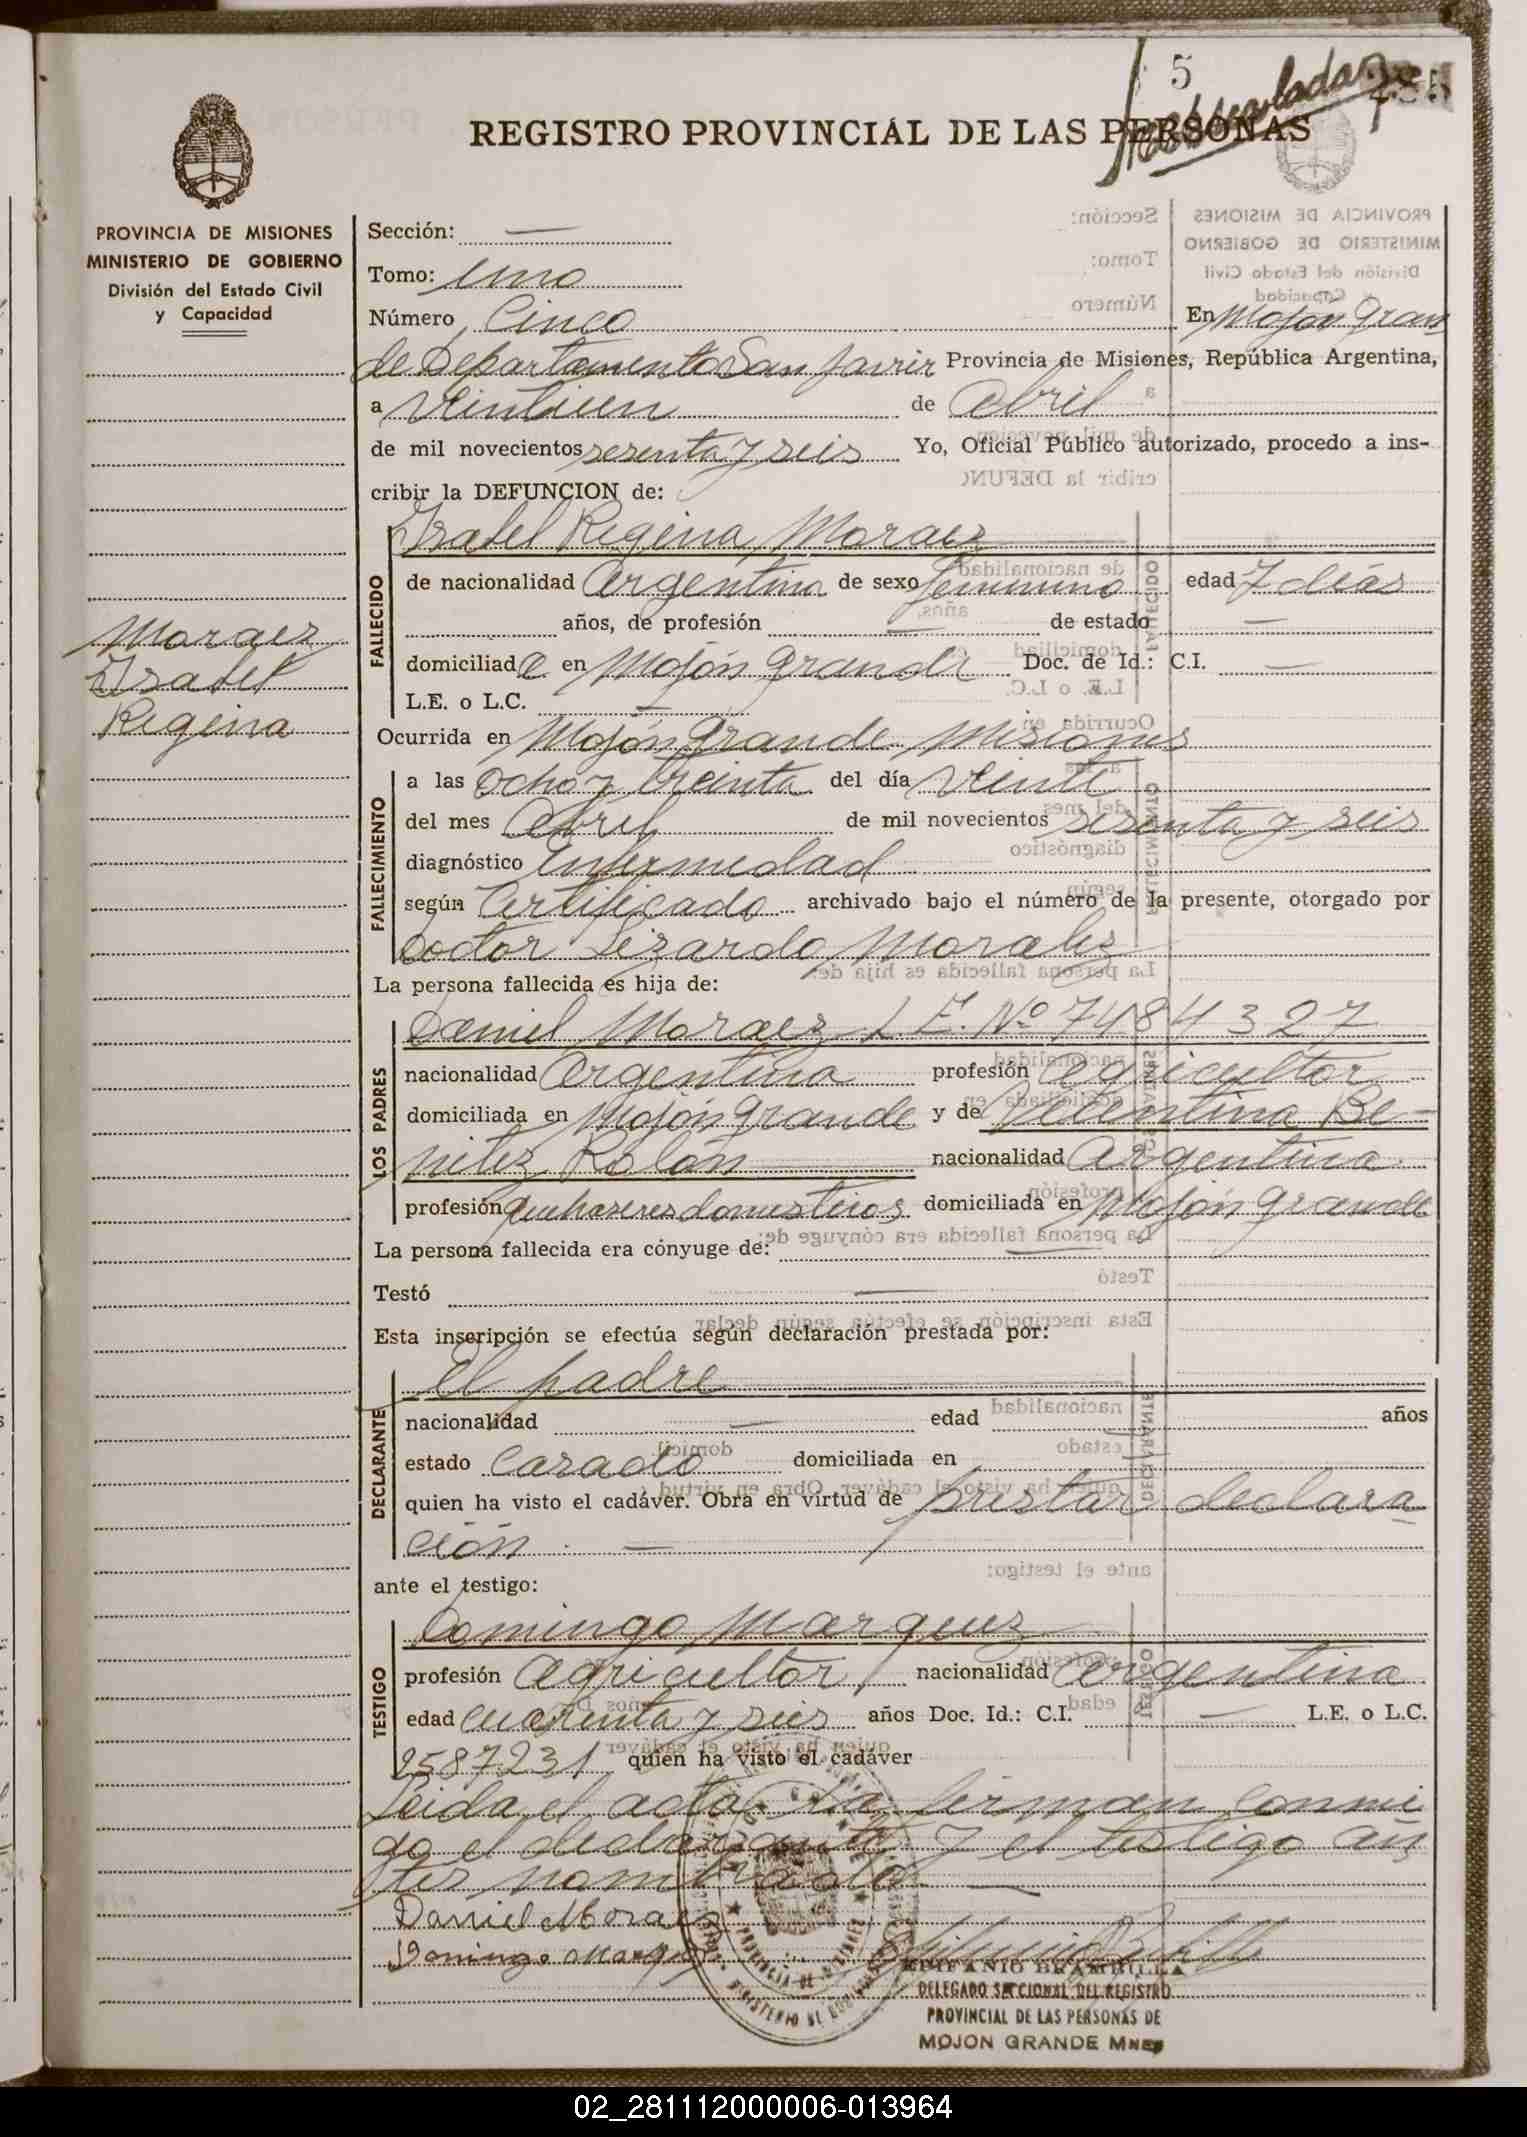 5
REGISTRO PROVINCIAL DE LAS PERSONAS
PROVINCIA DE MISIONES
MINISTERIO DE GOBIERNO
División del Estado Civil
y Capacidad
Sección: —
Tomo: uno
Número Cinco En Mojón Gran
de Departamento San Javier Provincia de Misiones, República Argentina,
a veintiun de Abril
de mil novecientos sesenta y seis Yo, Oficial Público autorizado, procedo a ins-
cribir la DEFUNCION de:
Isabel Regina Moraez
FALLECIDO
de nacionalidad Argentina de sexo femenino edad 7 días
años, de profesión — de estado —
domiciliad a en Mojón Grande Doc. de Id.: C.I. —
L.E. o L.C. —
Moraez
Isabel
Regina
Ocurrida en Mojón Grande Misiones
FALLECIMIENTO
a las ocho y treinta del día veinte
del mes Abril de mil novecientos sesenta y seis
diagnóstico Enfermedad
según Certificado archivado bajo el número de la presente, otorgado por
doctor Lizardo Morales
La persona fallecida es hija de:
LOS PADRES
Daniel Moraez L.E. Nº 7484327
nacionalidad Argentina profesión agricultor
domiciliada en Mojón Grande y de Valentina Be-
nitez Rolón nacionalidad Argentina
profesión quehaseres domesticos domiciliada en Mojón Grande
La persona fallecida era cónyuge de: —
Testó —
Esta inscripción se efectúa según declaración prestada por:
DECLARANTE
El padre
nacionalidad — edad años
estado casado domiciliada en
quien ha visto el cadáver. Obra en virtud de prestar declara
ción —
ante el testigo:
TESTIGO
Domingo Marquez
profesión agricultor nacionalidad argentina
edad cuarenta y seis años Doc. Id.: C.I. — L.E. o L.C.
2587231 quien ha visto el cadáver
Leida el acta la firman conmi
go el declarante y el testigo an
tes nombrado —
Daniel Moraez
Domingo Marquez
EPIFANIO BRAMBILLA
DELEGADO SECCIONAL DEL REGISTRO
PROVINCIAL DE LAS PERSONAS DE
MOJON GRANDE Mnes
02_281112000006-013964